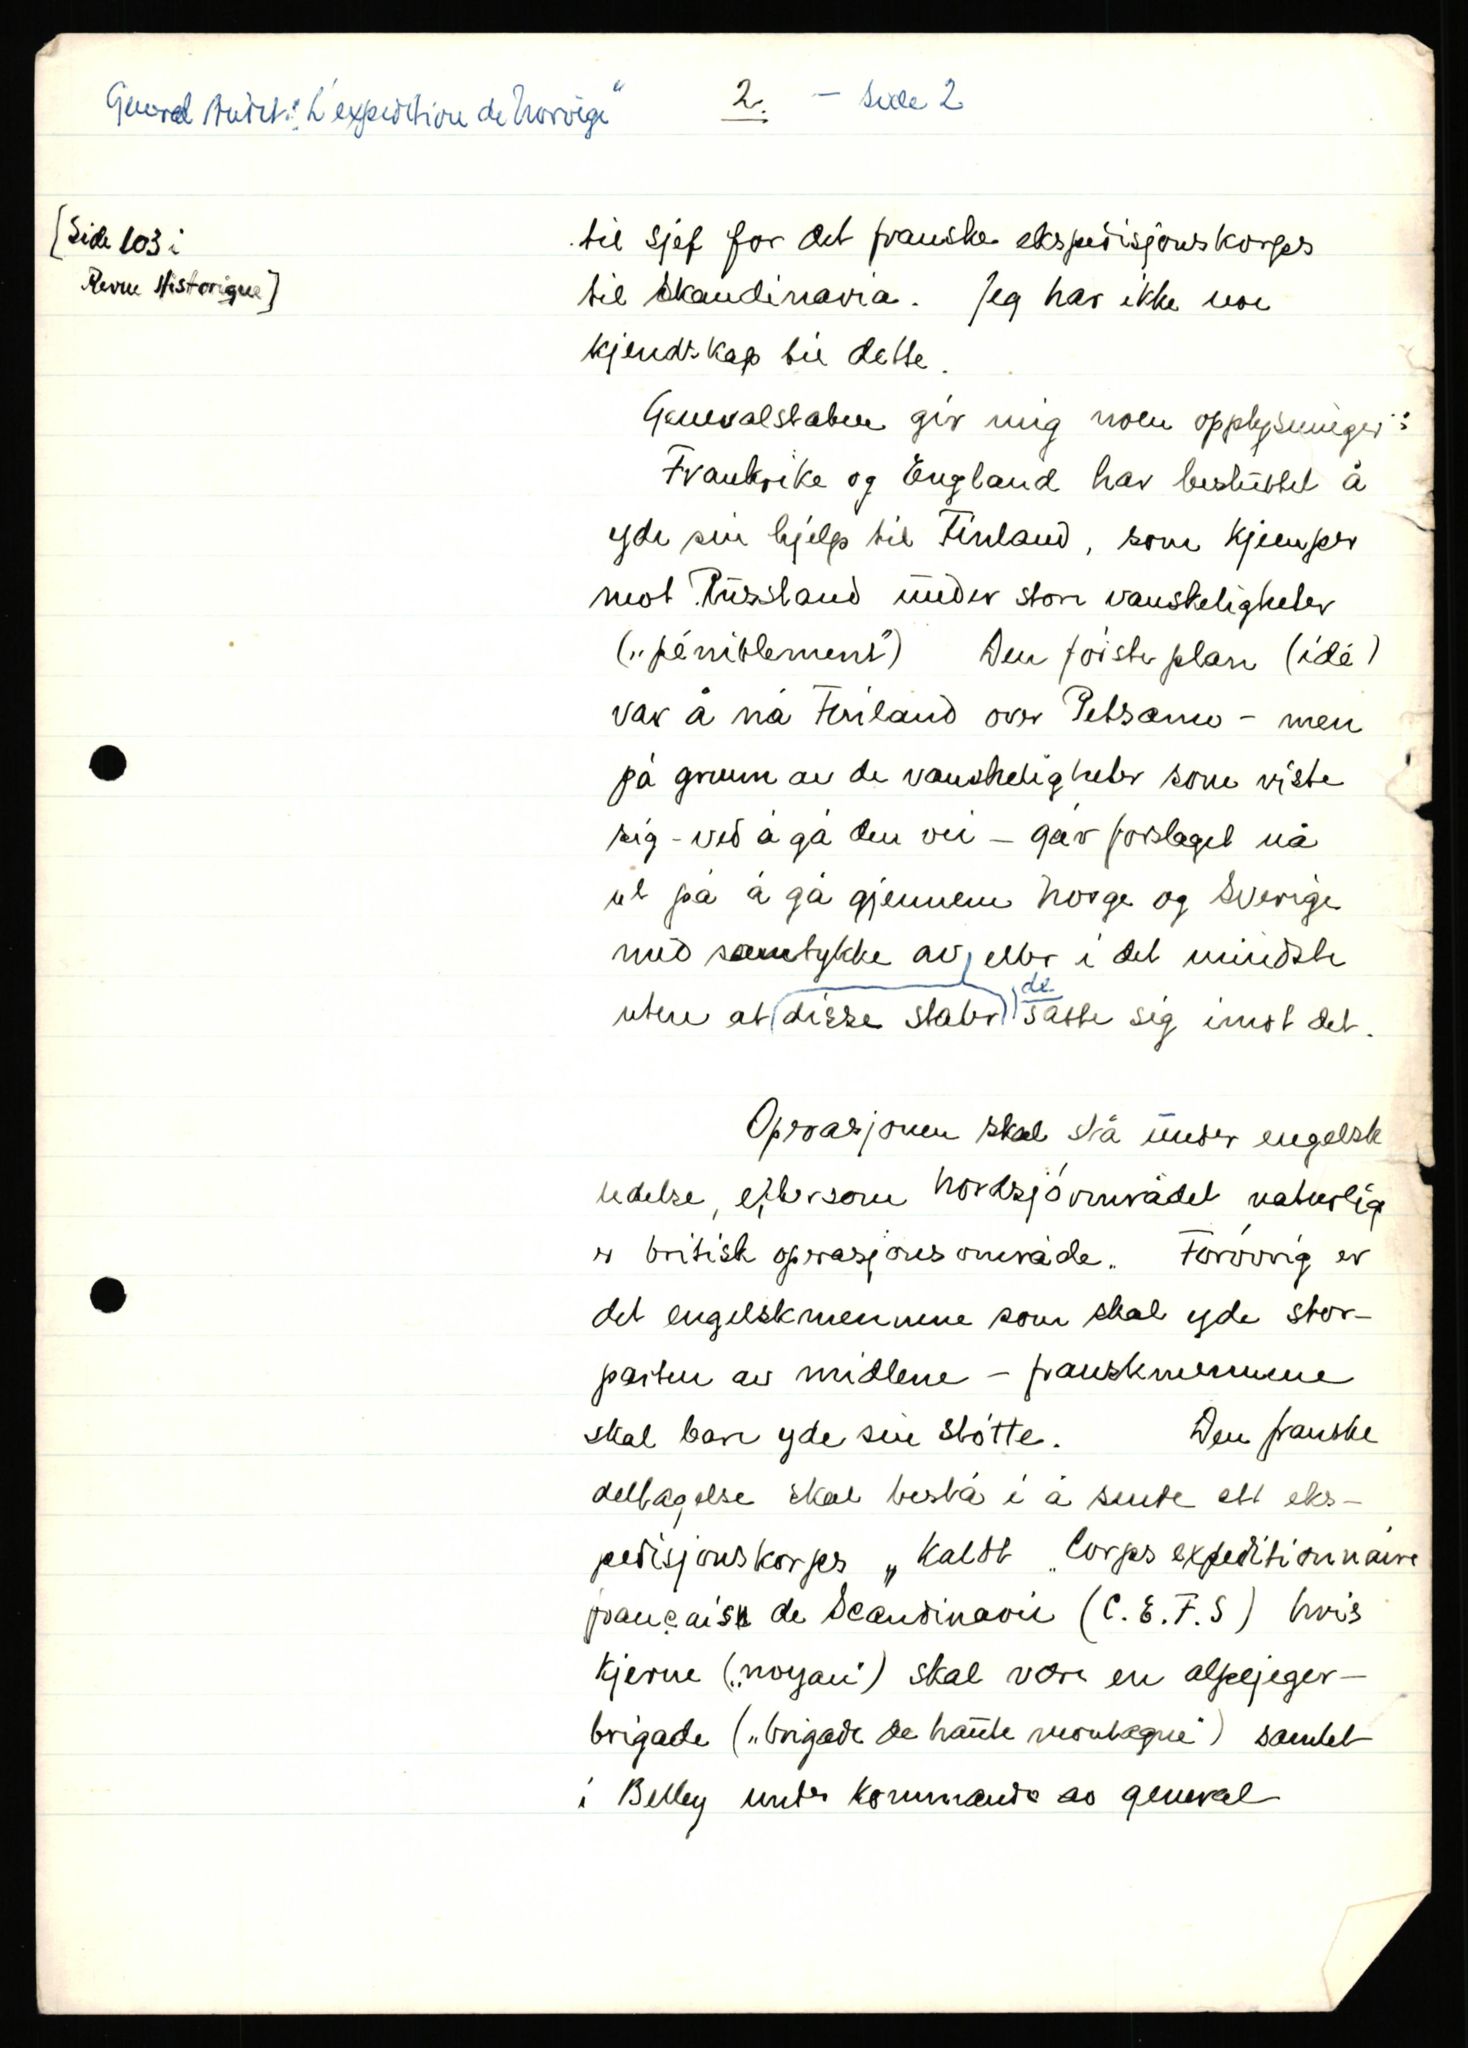 General Audet: "L'expedition de Norvège" 2. - Side 2
[Side 103 i
Revue Historique]
til sjef for det franske ekspedisjonskorps
til Skandinavia. Jeg har ikke noe
kjendskap til dette.
Generalstaben gir mig noen opplysninger:
Frankrike og England har besluttet å
yde sin hjelp til Finland, som kjemper
mot Russland under store vanskeligheter
(„péniblement") Den første plan (idé)
var å nå Finland over Petsamo - men
på grunn av de vanskeligheter som viste
sig - ved å gå den vei - går forslaget nå
ut på å gå gjennem Norge og Sverige
med samtykke av, eller i det mindste
de
uten at (disse stater) satte sig imot det.
Operasjonen skal stå under engelsk
ledelse, eftersom Nordsjöområdet naturlig
er britisk operasjonsområde. Forøvrig er
det engelskmennene som skal yde stor-
parten av midlene - franskmennene
skal bare yde sin støtte. Den franske
deltagelse skal bestå i å sende ett eks-
pedisjonskorps „ kaldt „Corps expeditionnaire
française de Scandinavie (C.E.F.S) hvis
kjerne („noyau") skal være en alpejeger-
brigade („brigade de haute montagne") samlet
i Belley under kommando av general